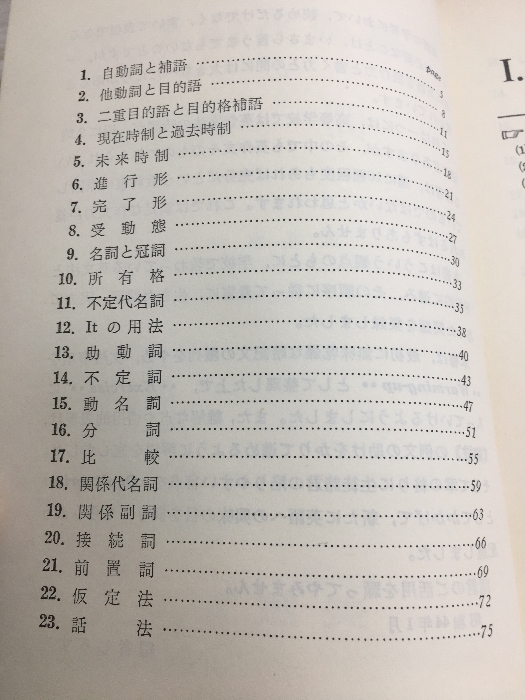 page
1. 自動詞と補語 …… 5
2. 他動詞と目的語 …… 8
3. 二重目的語と目的格補語 …… 11
4. 現在時制と過去時制 …… 15
5. 未来時制 …… 18
6. 進行形 …… 21
7. 完了形 …… 24
8. 受動態 …… 27
9. 名詞と冠詞 …… 30
10. 所有格 …… 33
11. 不定代名詞 …… 35
12. Itの用法 …… 38
13. 助動詞 …… 40
14. 不定詞 …… 43
15. 動名詞 …… 47
16. 分詞 …… 51
17. 比較 …… 55
18. 関係代名詞 …… 59
19. 関係副詞 …… 63
20. 接続詞 …… 66
21. 前置詞 …… 69
22. 仮定法 …… 72
23. 話法 …… 75
I.
☞
(1